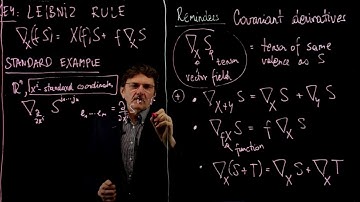 E4: LEIBNIZ RULE
∇_X(fS) = X(f)S + f∇_X S
STANDARD EXAMPLE
ℝⁿ
standard coordinates
Reminders
Covariant derivatives
∇_X S
tensor
vector field
= tensor of same
valence as S
• ∇_{X+Y} S = ∇_X S + ∇_Y S
• ∇_{fX} S = f ∇_X S
function
• ∇_X (S+T) = ∇_X S + ∇_X T